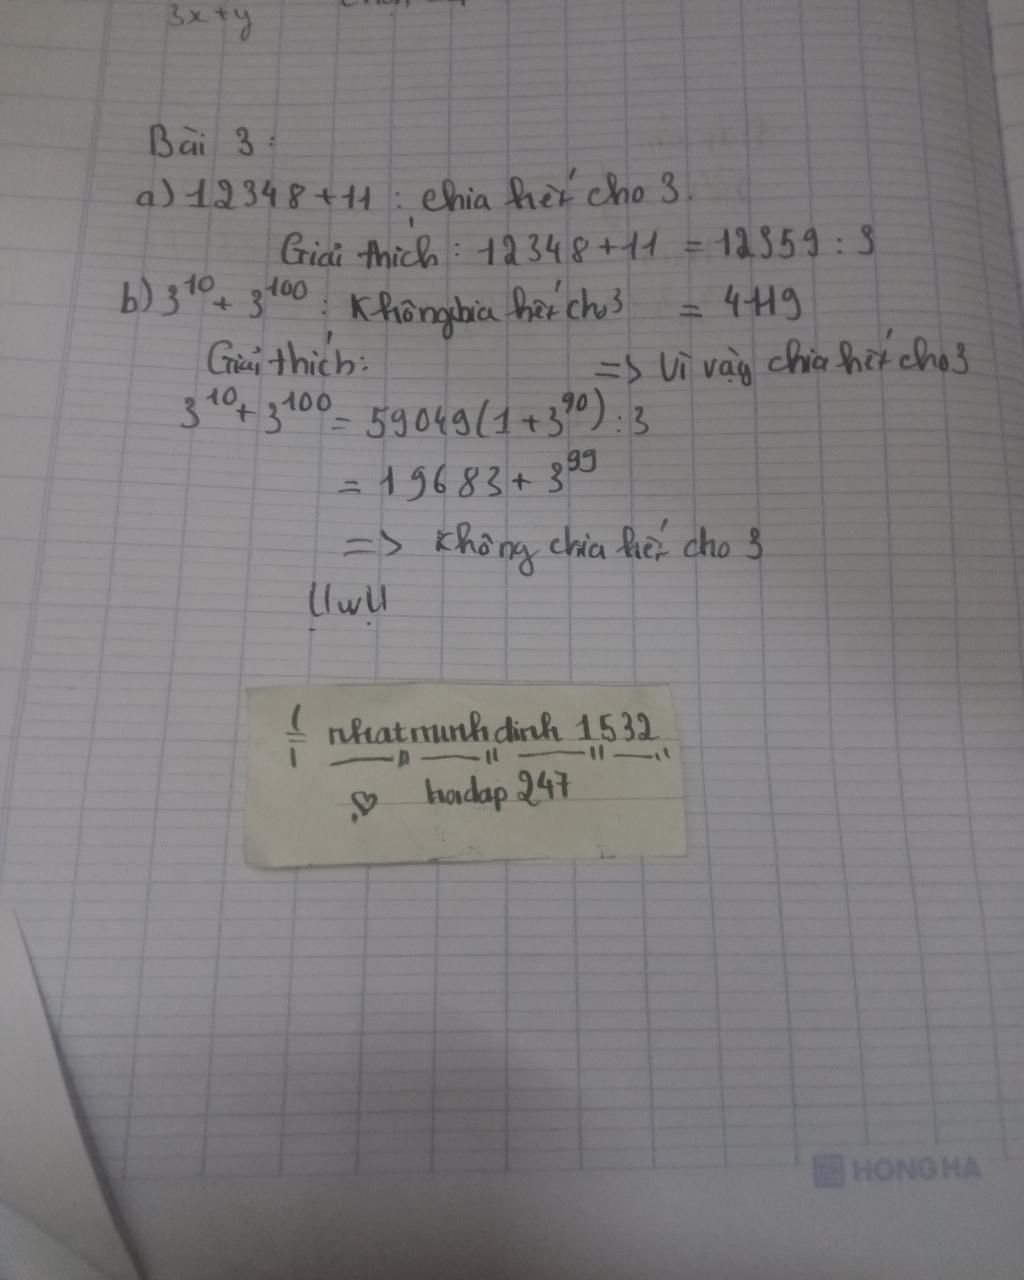 3x+y
Bài 3:
a) 12348+11 : chia hết cho 3.
Giải thích : 12348+11 = 12359 : 3
= 4119
=> Vì vậy chia hết cho 3
b) 3^10 + 3^100 : Không chia hết cho 3
Giải thích:
3^10 + 3^100 = 59049(1+3^90) : 3
= 19683 + 3^99
=> Không chia hết cho 3
UwU
nhatminhdinh1532
hoidap247
HONG HA